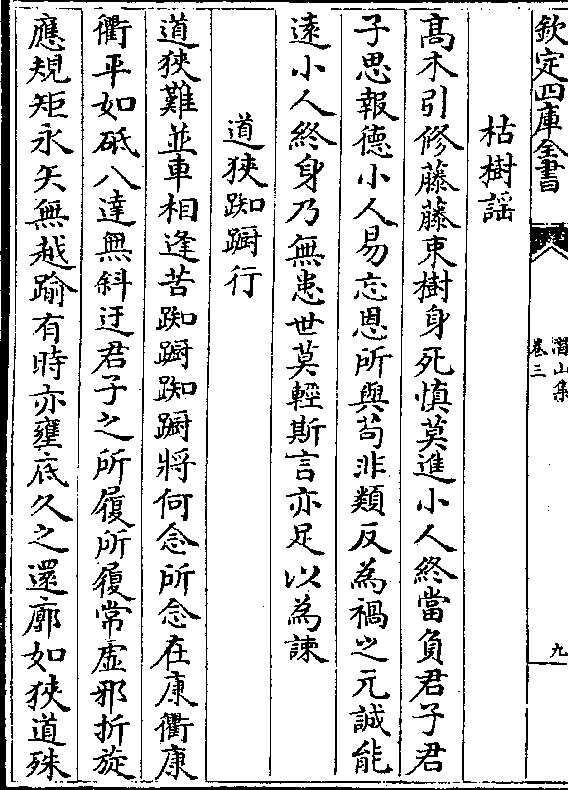 欽定四庫全書
潛山集
卷三
九
枯樹謡
髙木引修藤藤束樹身死慎莫進小人終當負君子君
子思報德小人易忘恩所與苟非類反為禍之元誠能
逺小人終身乃無患世莫輕斯言亦足以為諫
道狹踟蹰行
道狹難並車相逢苦踟蹰踟蹰將何念所念在康衢康
衢平如砥八達無斜迂君子之所履所履常虚邪折旋
應規矩永矢無越踰有時亦壅底久之還廓如狹道殊